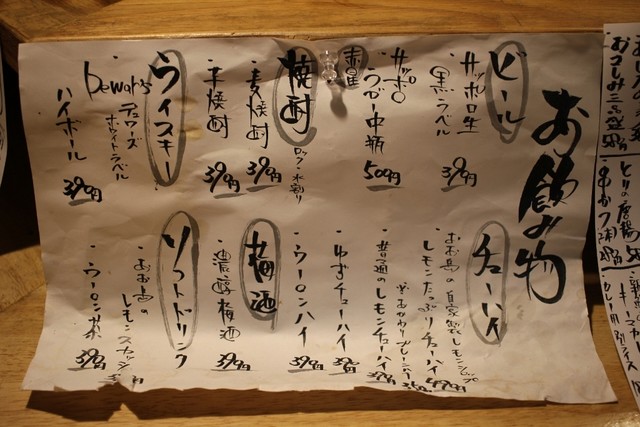 お飲み物
ビール
・サッポロ生
黒ラベル
390円
・サッポロ
赤星
ラガー中瓶
500円
焼酎
ロック/水割り
・麦焼酎
390円
・芋焼酎
390円
ウイスキー
・Dewar's
デュワーズ
ホワイトラベル
ハイボール
390円
チューハイ
・お鳥の自家製レモンシロップ
レモンたっぷりチューハイ
490円
・普通のレモンチューハイ
390円
・ゆずチューハイ
390円
・ウーロンハイ
390円
梅酒
・濃醇梅酒
390円
ソフトドリンク
・お鳥の
レモンスカッシュ
・ウーロン茶
390円
とりの唐揚
串かつ